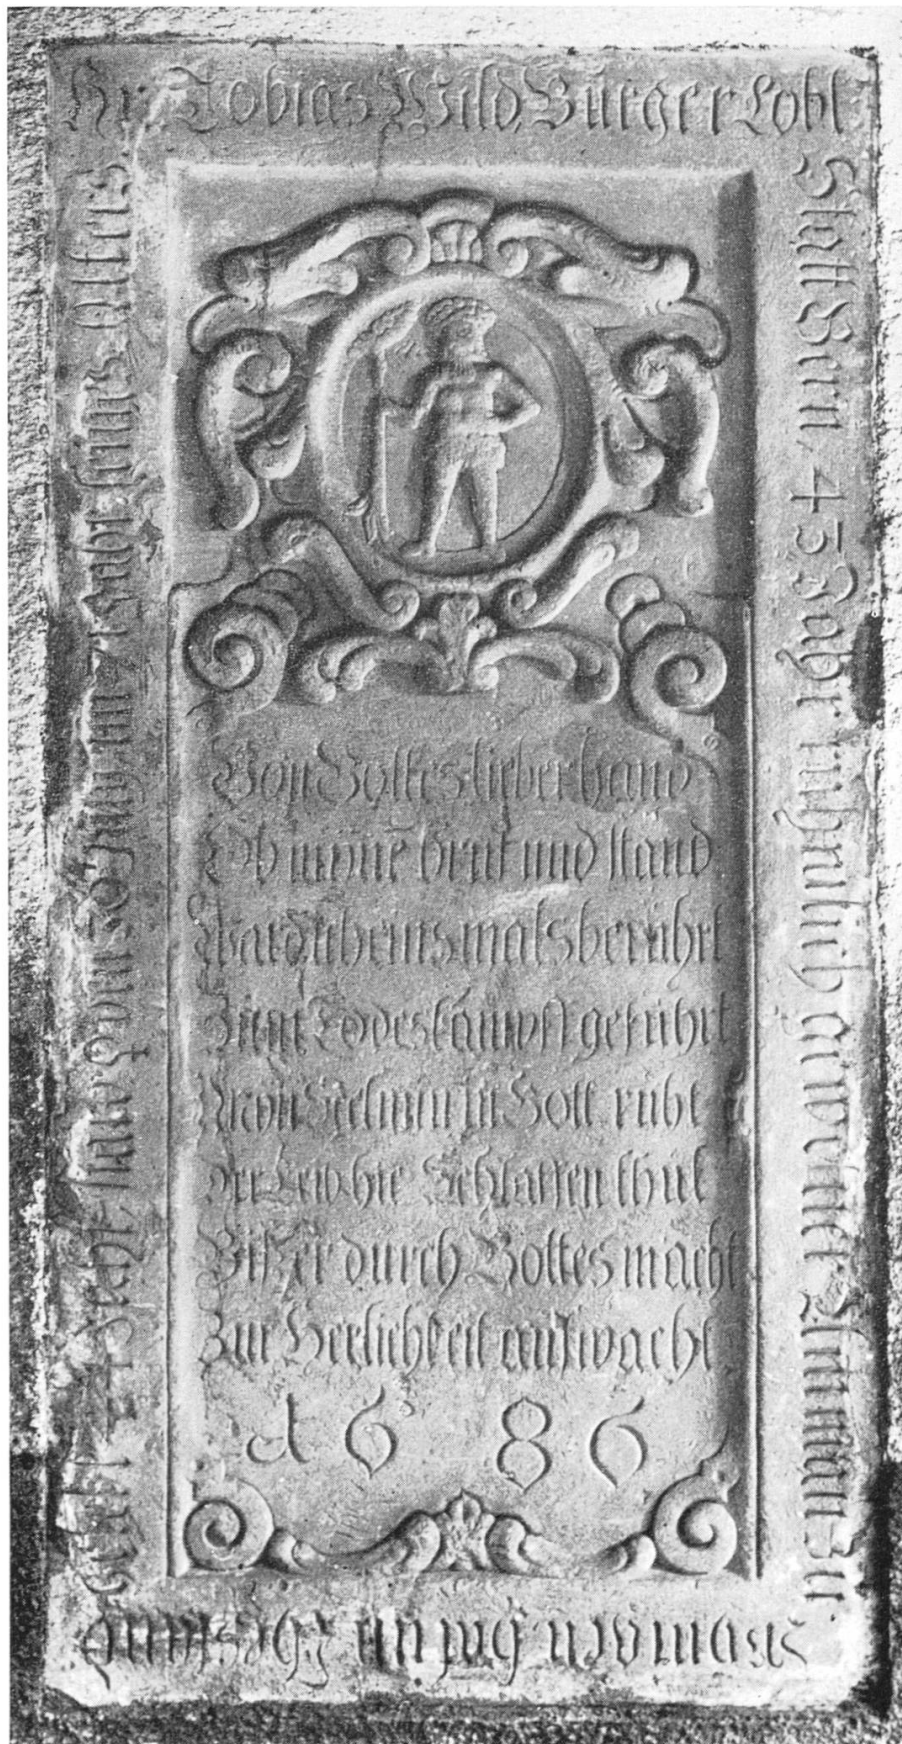 Hr. Tobias Wild, Burger Lobl
Statt Bern, 45 Jahr ruhmlich gewener Amman Zu
hat im Ehestand
gelebt 44 Jahr, starb den im 71 Jahr seines Alters
Von Gottes lieber hand
Ob meine brust und stand
Ward scheins mals berührt
Zum Todeskampff geführt
Mein Seel nun in Gott ruht
Der Leib hie Schlaffen thut
Biß Er durch Gottes macht
Zur Herlichkeit aufwacht
1686